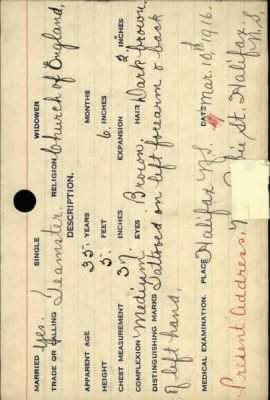 MARRIED Yes. SINGLE WIDOWER
TRADE OR CALLING Teamster RELIGION Church of England,
DESCRIPTION.
APPARENT AGE 35 YEARS MONTHS
HEIGHT 5 6 INCHES
CHEST MEASUREMENT 37 INCHES EXPANSION 2 INCHES
COMPLEXION Medium EYES Brown HAIR Dark brown
DISTINGUISHING MARKS Tattooed on left forearm & back
of left hand.
MEDICAL EXAMINATION. PLACE Halifax N.S. DATE Mar. 10th 1916.
Present address, St. Halifax,
N.S.